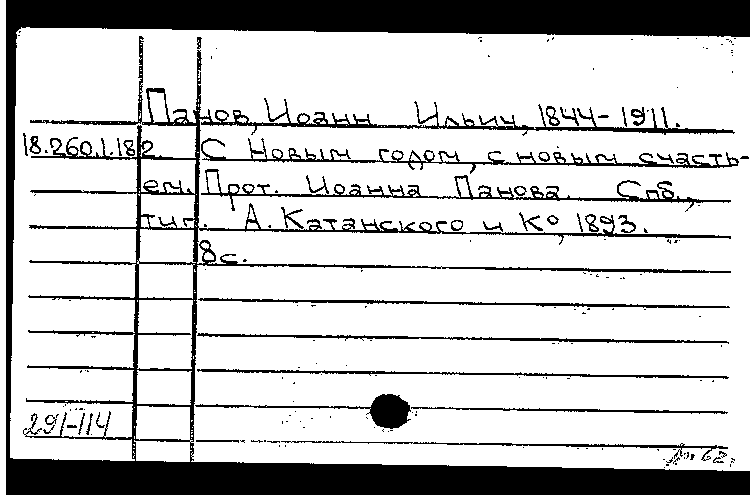 Панов, Иоанн Ильич, 1844-1911.
18.260.1.182 С Новым годом, с новым счасть-
ем. Прот. Иоанна Панова. Спб.,
тип. А. Катанского и К°, 1893.
8с.
291-114
62.